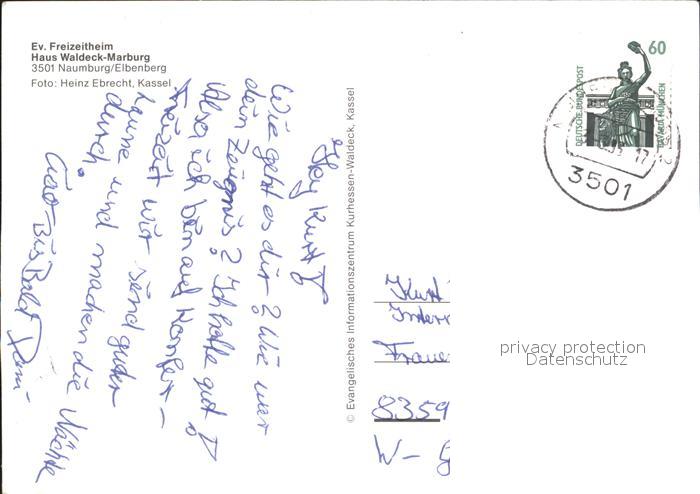 Ev. Freizeitheim
Haus Waldeck-Marburg
3501 Naumburg/Elbenberg
Foto: Heinz Ebrecht, Kassel
Hey Kurt!
Wie geht es dir? Wie war
dein Zeugnis? Ich hatte gut!
Also ich bin auf Konfer-
Freizeit wir sind guter
Laune und machen die Nächte
durch.
Ciao-Bis Bald
© Evangelisches Informationszentrum Kurhessen-Waldeck, Kassel
60
DEUTSCHE BUNDESPOST
BAVARIA MÜNCHEN
17
3501
Kurt
Frau
8359
W-
privacy protection
Datenschutz